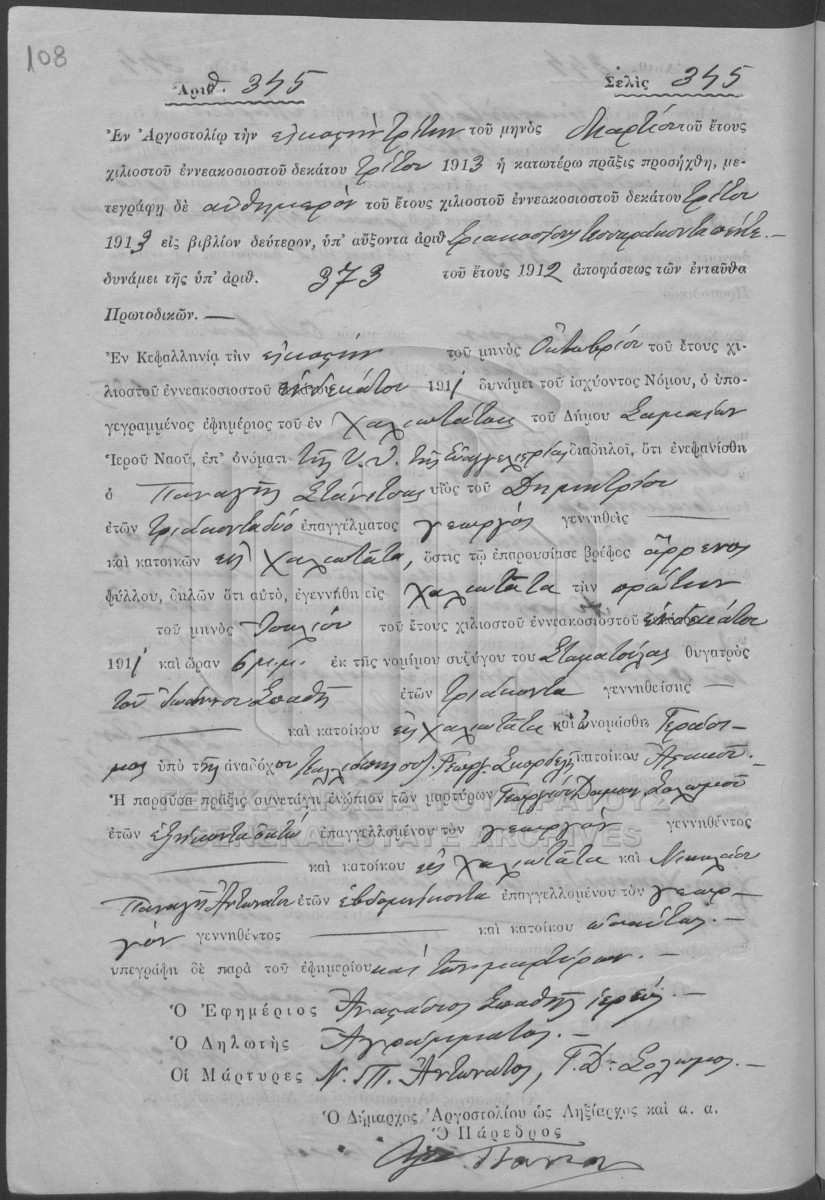 108
Ἀριθ. 345 Σελὶς 345
Ἐν Ἀργοστολίῳ τὴν εἰκοστὴν τρίτην τοῦ μηνὸς Μαρτίου τοῦ ἔτους
χιλιοστοῦ ἐννεακοσιοστοῦ δεκάτου τρίτου 1913 ἡ κατωτέρω πρᾶξις προσήχθη, με-
τεγράφη δὲ αὐθημερὸν τοῦ ἔτους χιλιοστοῦ ἐννεακοσιοστοῦ δεκάτου τρίτου
1913 εἰς βιβλίον δεύτερον, ὑπ' αὔξοντα ἀριθ τριακοστὸν τεσσαράκοντα πέντε.—
δυνάμει τῆς ὑπ' ἀριθ. 373 τοῦ ἔτους 1912 ἀποφάσεως τῶν ἐνταῦθα
Πρωτοδικῶν.—
Ἐν Κεφαλληνίᾳ τὴν εἰκοστὴν τοῦ μηνὸς Ὀκτωβρίου τοῦ ἔτους χι-
λιοστοῦ ἐννεακοσιοστοῦ ἑνδεκάτου 1911 δυνάμει τοῦ ἰσχύοντος Νόμου, ὁ ὑπο-
γεγραμμένος ἐφημέριος τοῦ ἐν Χαλιωτάτοις τοῦ Δήμου Σαμαίων
Ἱεροῦ Ναοῦ, ἐπ' ὀνόματι τῆς Υ. Θ. τῆς Εὐαγγελιστρίας διαδηλοῖ, ὅτι ἐνεφανίσθη
ὁ Παναγῆς Στάνιτσας υἱὸς τοῦ Δημητρίου
ἐτῶν τριάκοντα δύο ἐπαγγέλματος γεωργὸς γεννηθεὶς —
καὶ κατοικῶν εἰς Χαλιωτάτα, ὅστις τῷ ἐπαρουσίασε βρέφος ἄρρενος
φύλλου, δηλῶν ὅτι αὐτό, ἐγεννήθη εἰς Χαλιωτάτα τὴν πρώτην
τοῦ μηνὸς Ἰουλίου τοῦ ἔτους χιλιοστοῦ ἐννεακοσιοστοῦ ἑνδεκάτου
1911 καὶ ὥραν 6 μ.μ. ἐκ τῆς νομίμου συζύγου του Σταματούλας θυγατρὸς
τοῦ Ἰωάννου Σπαθῆ ἐτῶν τριάκοντα γεννηθείσης —
— καὶ κατοίκου εἰς Χαλιωτάτα καὶ ὠνομάσθη Γεράσι-
μος ὑπὸ τῆς ἀναδόχου Γεωργ. κατοίκου
Ἡ παροῦσα πρᾶξις συνετάγη ἐνώπιον τῶν μαρτύρων Γεωργίου Σολωμοῦ
ἐτῶν ἑξήκοντα ἐπαγγελλομένου τὸν γεωργὸν γεννηθέντος
— καὶ κατοίκου εἰς Χαλιωτάτα καὶ Νικολάου
Παναγῆ Ἀντωνάτου ἐτῶν ἑβδομήκοντα ἐπαγγελλομένου τὸν γεωρ-
γὸν γεννηθέντος — καὶ κατοίκου ὡσαύτως.—
ὑπεγράφη δὲ παρὰ τοῦ ἐφημερίου καὶ τῶν μαρτύρων.—
Ὁ Ἐφημέριος Ἀναστάσιος Σπαθῆς ἱερεύς.—
Ὁ Δηλωτὴς Ἀγράμματος.—
Οἱ Μάρτυρες Ν. Π. Ἀντωνάτος, Γ. Δ. Σολωμός.—
Ὁ Δήμαρχος Ἀργοστολίου ὡς Ληξίαρχος καὶ α. α.
Ὁ Πάρεδρος
ΓΕΝΙΚΑ ΑΡΧΕΙΑ ΤΟΥ ΚΡΑΤΟΥΣ
GENERAL STATE ARCHIVES